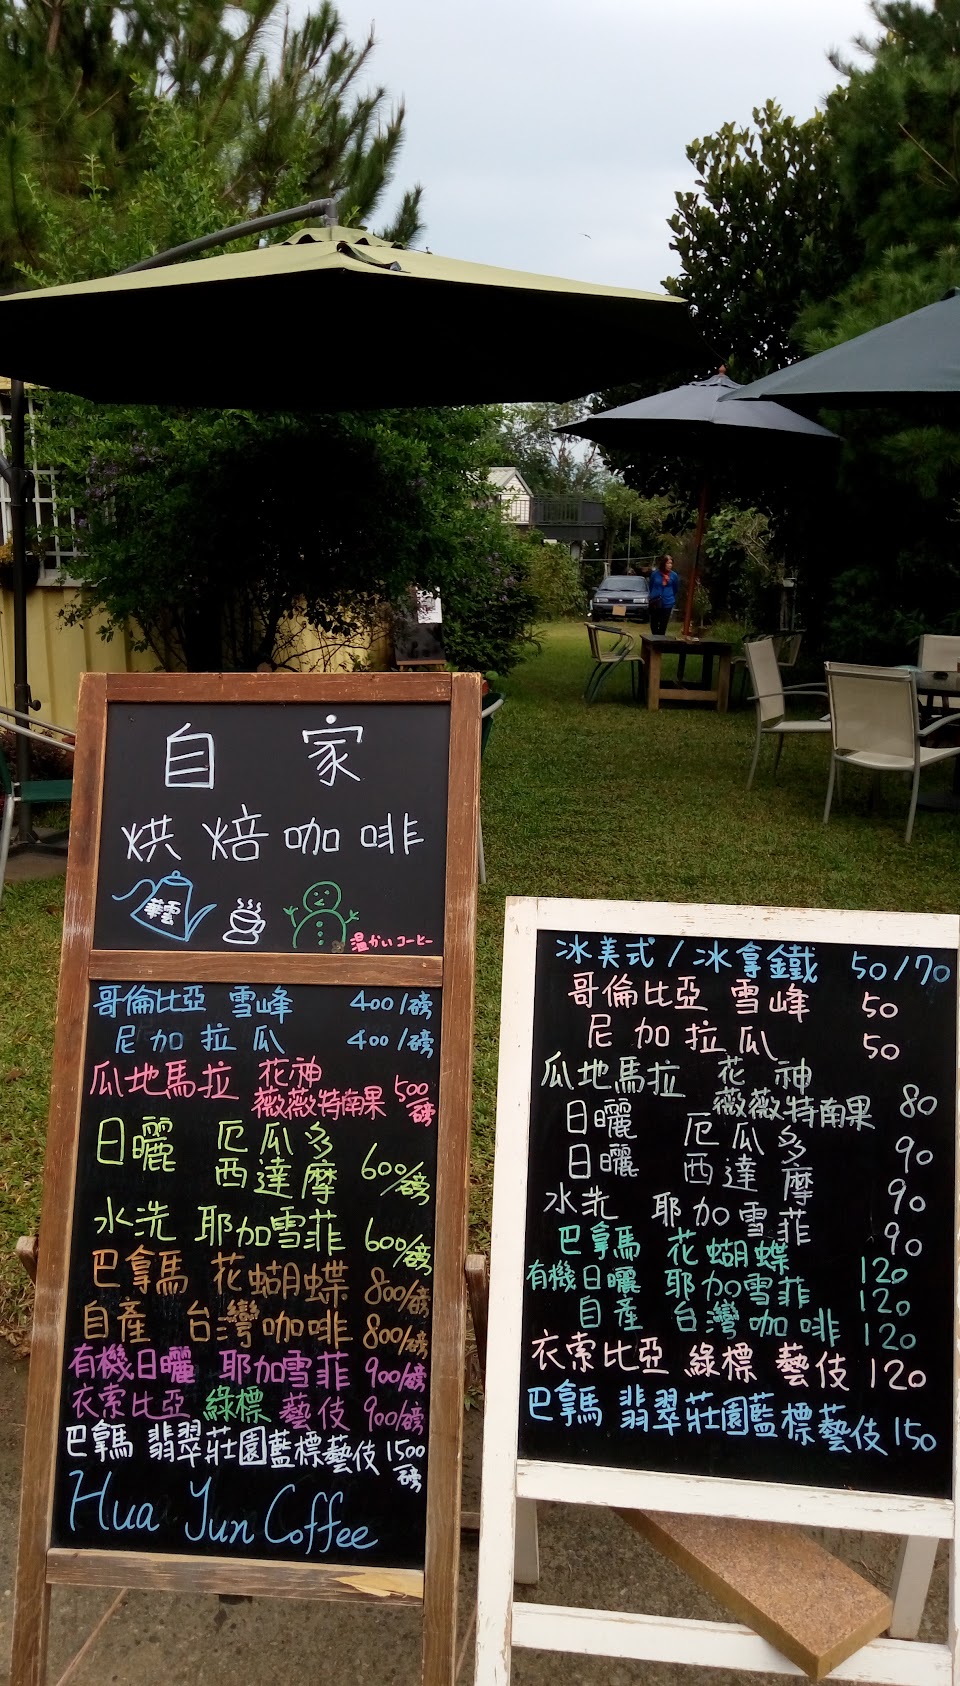 自 家
烘焙咖啡
華雲
温かいコーヒー
哥倫比亞 雪峰 400/磅
尼加拉瓜 400/磅
瓜地馬拉 花神 薇薇特南果 500/磅
日曬 厄瓜多
西達摩 600/磅
水洗 耶加雪菲 600/磅
巴拿馬 花蝴蝶 800/磅
自產 台灣咖啡 800/磅
有機日曬 耶加雪菲 900/磅
衣索比亞 綠標 藝伎 900/磅
巴拿馬 翡翠莊園藍標藝伎 1500/磅
Hua Yun Coffee
冰美式/冰拿鐵 50/70
哥倫比亞 雪峰 50
尼加拉瓜 50
瓜地馬拉 花神
薇薇特南果 80
日曬 厄瓜多 90
日曬 西達摩 90
水洗 耶加雪菲 90
巴拿馬 花蝴蝶 120
有機日曬 耶加雪菲 120
自產 台灣咖啡 120
衣索比亞 綠標 藝伎 120
巴拿馬 翡翠莊園藍標藝伎 150